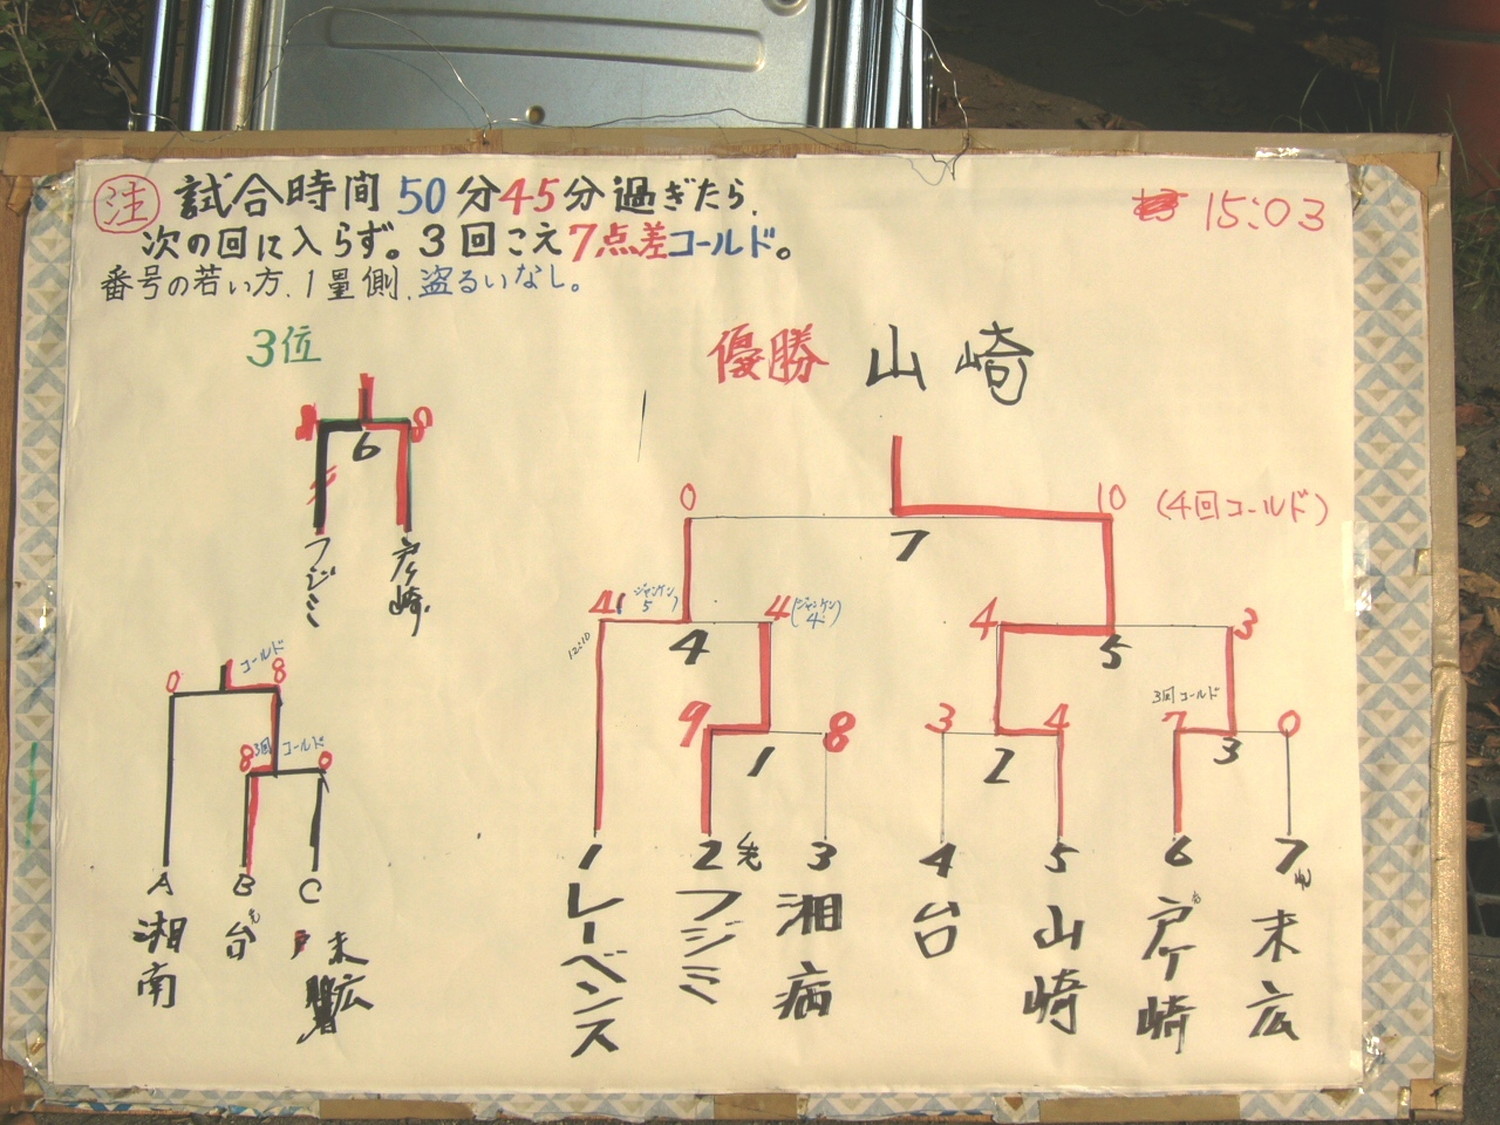 注 試合時間50分45分過ぎたら、
次の回に入らず。3回こえ7点差コールド。
番号の若い方、1塁側、盗るいなし。
15:03
3位
6
フジミ
戸ヶ崎
優勝 山崎
0 10 (4回コールド)
7
4 ジャンケン 5
4 (ジャンケン 4)
12:10
4
4 3
5
9 8
1
3 4
2
3回コールド
7 0
3
1 レーベンス
2 フジミ
3 湘病
4 台
5 山崎
6 戸ケ崎
7 末広
コールド
0 8
3回コールド
8 0
A 湘南
B 台
C 末広